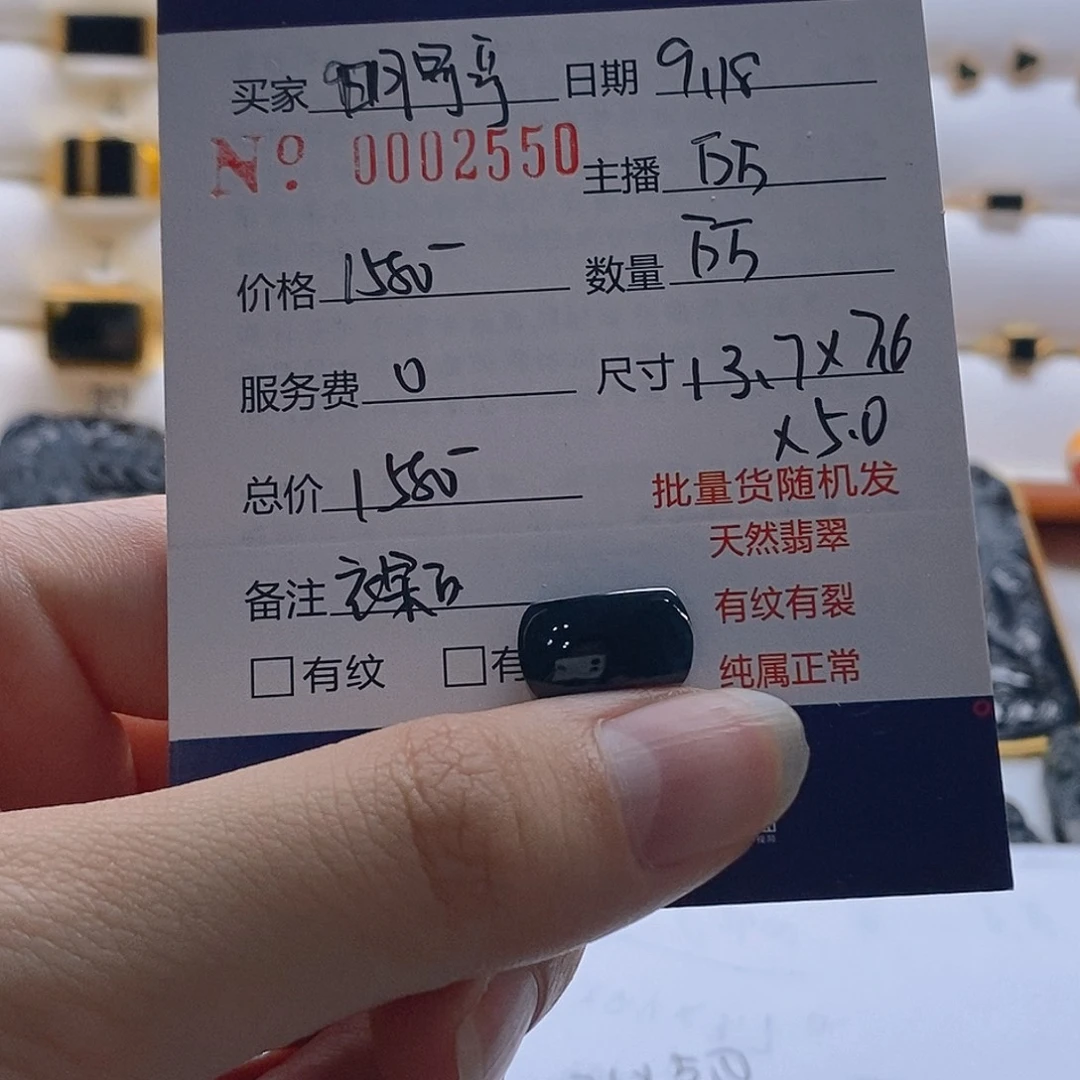 买家 明哥哥 日期 9.18
Nº: 0002550 主播
价格 1580 数量
服务费 0 尺寸 13.7×7.6
×5.0
总价 1580 批量货随机发
天然翡翠
备注 有纹有裂
□有纹 □有 纯属正常